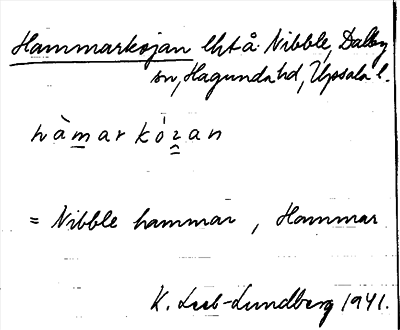 Hammarkojan lht å Nibble, Dalby
sn, Hagunda hd, Uppsala l.
hàmarkózan
= Nibble hammar, Hammar
K. Leeb-Lundberg 1941.